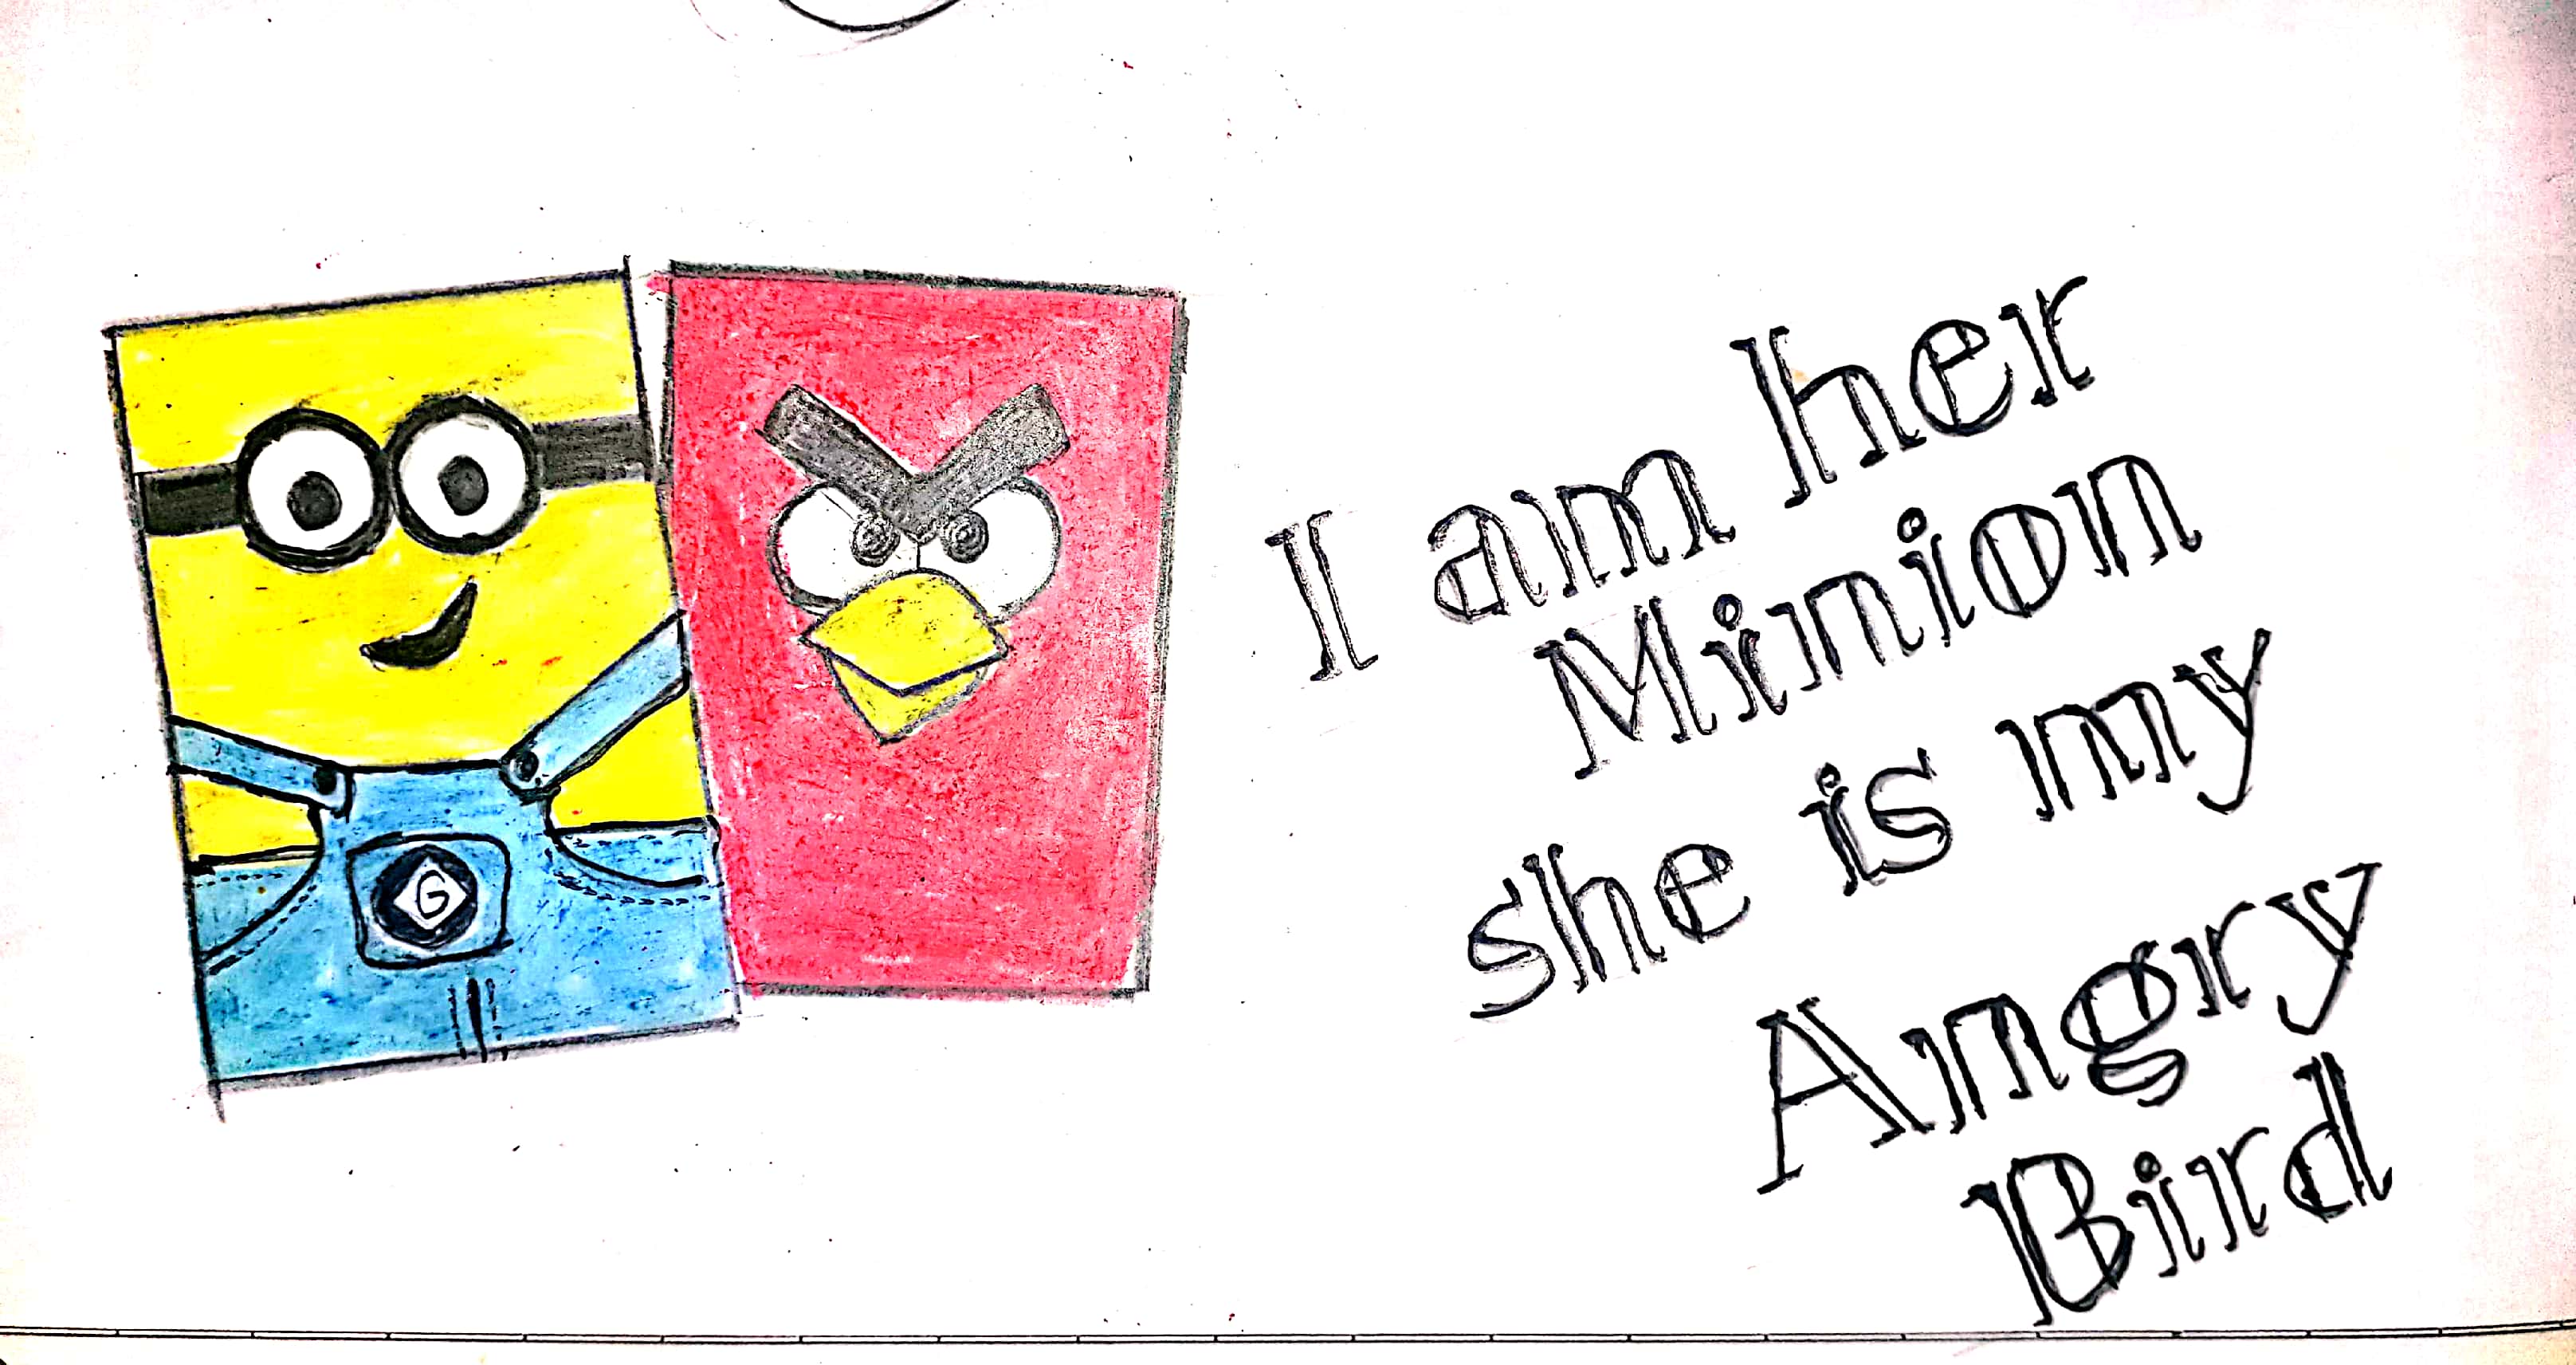 G
I am her
Minion
she is my
Angry
Bird